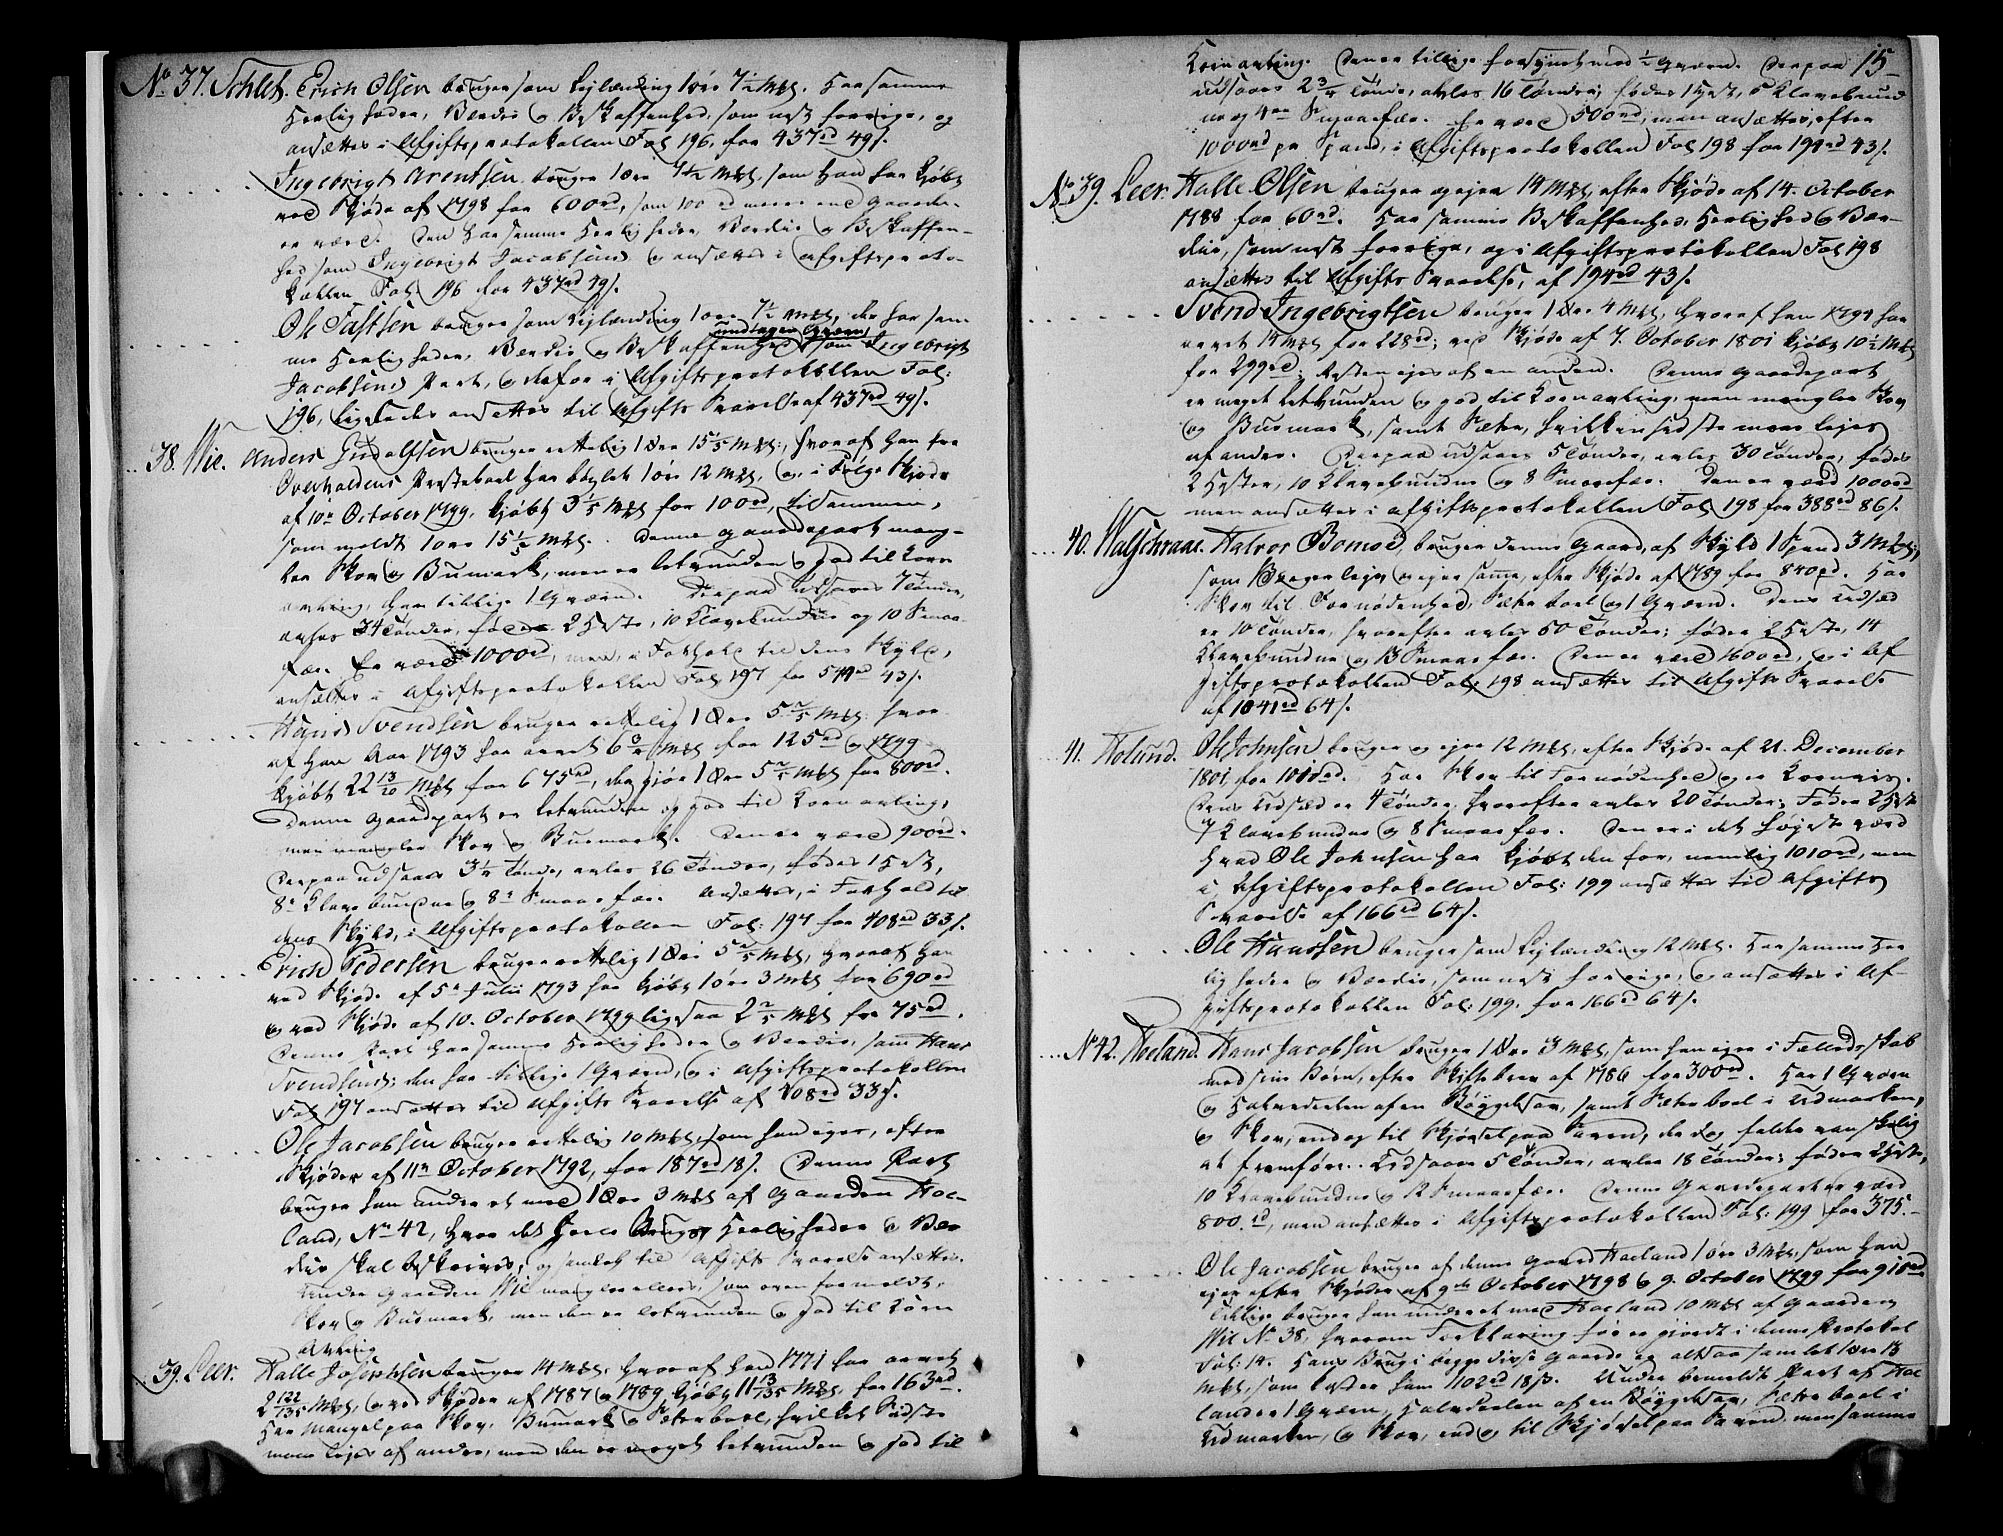 No 37. Schlet. Erich Olsen bruger som Leylænding 1 øre 7 1/2 Mkl. Har samme
Herligheder, Værdie og Beskaffenhed, som nest forrige, og
ansættes i Afgiftsprotokollen Fol 196, for 437 rd 49 s.
Ingebrigt Arentsen bruger 1 øre 7 1/2 Mkl, som han har kjøbt
ved Skjøde af 1798 for 600 rd, som 100 rd mere end Gaarden
er værd. Den har samme Herligheder, Værdie og Beskaffen-
hed som Ingebrigt Jacobsens og ansættes i Afgiftsproto-
kollen Fol 196 for 437 rd 49 s.
Ole Tastsen bruger som Leylænding 1 øre 7 1/2 Mkl, der har sam-
undtagen Qværn
me Herligheder, Værdie og Beskaffenhed som Ingebrigt
Jacobsens Part, og derfor i Afgiftsprotokollen Fol:
196, ligeledes ansættes til Afgifts Svarelse af 437 rd 49 s.
38. Wie. Anders Gudolfsen bruger rettelig 1 Øre 15 1/5 Mkl: hvoraf han fra
Overhaldens Præsteboel har bøxlet 1 øre 12 Mkl, og, i Følge Skjøde
af 10de October 1799, kjøbt 3 1/5 Mkl for 100 rd, tilsammen,
som meldt 1 øre 15 1/5 Mkl. Denne Gaardepart mang-
ler Skov og Bumark, men er letvunden og god til Korn
avling, har tillige 1 Qværn. Derpaa udsaaes 7 Tønder,
avles 34 Tønder, fødes 2 Heste, 10 Klavebundne og 10 Smaa-
fæe. Er værd 1000 rd, men, i Forhold til dens Skyld,
ansættes i Afgiftsprotokollen Fol 197 for 544 rd 43 s.
Hans Svendsen bruger rettelig 1 Øre 5 2/5 Mkl: hvor
af han Aar 1793 har arvet 6 3/4 Mkl for 125 rd og 1799
kjøbt 22 13/20 Mkl for 675 rd, der gjør 1 Øre 5 2/5 Mkl for 800 rd.
Denne Gaardepart er letvunden og god til Kornavling,
men mangler Skov og Bumark. Den er værd 900 rd.
Derpaa udsaaes 3 1/4 Tønde, avles 26 Tønder, fødes 1 Hest,
8te Klavebundne og 8te Smaafæe. Ansættes, i Forhold til
dens Skyld, i Afgiftsprotokollen Fol: 197 for 408 rd 33 s.
Erich Pedersen bruger rettelig 1 Øre 5 2/5 Mkl, hvoraf han
ved Skjøde af 5te Julii 1793 har kjøbt 1 øre 3 Mkl for 690 rd
og ved Skjøde af 10. October 1799 ligesaa 2 2/5 Mkl for 75 rd.
Denne Part har samme Herligheder og Værdie, som Hans
Svendsens; den har tillige 1 Qværn, og i Afgiftsprotokollen
Fol 197 ansættes til Afgifts Svarelse af 408 rd 33 s.
Ole Jacobsen bruger rettelig 10 Mkl, som han eger, efter
Skjøder af 11te October 1792, for 187 rd 18 s. Denne Part
bruger han under et med 1 Øre 3 Mkl af Gaarden Hoe-
land, No 42, hvor det heele Brugs Herligheder og Vær
die skal beskrives, og samlet til Afgifts Svarelse ansættes.
Under Gaarden Wie mangler ellers, som oven formeldt,
Skov og Bumark, men den er letvunden og god til Korn
avling
39. Leer. Halle Josephsen bruger 14 Mkl, hvoraf han 1771 har arvet
2 122/135 Mkl, og ved Skjøder af 1787 og 1789 kjøbt 11 13/135 Mkl, for 163 rd.
Har Mangel paa Skov, Bumark og Sæterboel, hvilket Sidste
maae lejes af andre, men den er meget letvunden og god til
15
Kornavling. Den er tillige forsynet med 1/2 Qværn. Derpaa
udsaaes 2 3/4 Tønde, avles 16 Tønder; fødes 1 Hest, 5 Klavebund
ne og 4re Smaafæe. Er værd 500 rd; men ansættes, efter
1000 rd pr Spand, i Afgiftsprotokollen Fol 198 for 194 rd 43 s.
No 39. Leer. Halle Olsen bruger og ejer 14 Mkl, efter Skjøde af 14. October
1788 for 60 rd. Har samme Beskaffenhed, Herlighed og Vær-
die, som nest forrige, og i Afgiftsprotokollen Fol 198
ansættes til Afgifts Svarelse, af 194 rd 43 s.
Svend Ingebrigtsen bruger 1 Øre 4 Mkl, hvoraf han 1794 har
arvet 14 Mkl for 228 rd; ved Skjøde af 7. October 1801 kjøbt 10 1/2 Mkl
for 299 rd; Resten ejes af en anden. Denne Gaardepart
er meget letvunden og god til Kornavling, men mangler Skov
og Bumark, samt Sæter, hvilken sidste maae lejes
af andre. Derpaa udsaaes 5 Tønder, avles 30 Tønder, fødes
2 Heste, 10 Klavebundne og 8 Smaafæe. Den er værd 1000 rd
men ansættes i Afgiftsprotokollen Fol 198 for 388 rd 86 s.
40. Walschraae. Halvor Bomoe, bruger denne Gaard, af Skyld 1 Spand 3 Mkl;
som Bruger lejer og ejer samme, efter Skjøde af 1789 for 840 rd. Har
Skov til Fornødenhed, Sæterboel og 1 Qværn. Dens Udsæd
er 10 Tønder, hvorefter avles 50 Tønder; føder 2 Heste, 14
Klavebundne og 13 Smaafæe. Den er værd 1600 rd, og i Af
giftsprotokollen Fol 198 ansættes til Afgifts Svarelse
af 1041 rd 64 s.
41. Holund. Ole Johnsen bruger og ejer 12 Mkl, efter Skjøde af 21. December
1801, for 1010 rd. Har Skov til Fornødenhed og er Kornvis.
Dens Udsæd er 4 Tønder, hvorefter avles 20 Tønder; Føder 2 Heste
7 Klavebundne og 8 Smaafæe. Den er i det højeste værd
hvad Ole Johnsen har kjøbt den for, nemlig 1010 rd, men
i Afgiftsprotokollen Fol: 199 ansættes til Afgifts
Svarelse af 166 rd 64 s.
Ole Hanssen bruger som Leylænding 12 Mkl. Har samme Her
ligheder og Værdie, som nest forrige, og ansættes i Af-
giftsprotokollen Fol: 199, for 166 rd 64 s.
No 42. Hoeland. Hans Jacobsen bruger 1 Øre 3 Mkl, som han ejer i Fælledsskab
med sine Børn, efter Skiftebrev af 1786 for 300 rd. Har 1 Qværn
og Halvedeelen af en Bøygdesav, samt Sæterboel i Udmarken,
og Skov, endog til Skjørsel paa Saven, der dog falder vanskelig
at fremføre. Udsaaer 5 Tønder, avler 18 Tønder; føder 2 Heste,
10 Klavebundne og 12 Smaafæe. Denne Gaardepart er værd
800 rd, men ansættes i Afgiftsprotokollen Fol: 199 for 375.-
Ole Jacobsen bruger af denne Gaard Hoeland 1 øre 3 Mkl, som han
ejer efter Skjøder af 9de October 1798 & 9. October 1799 for 910 rd
tillige bruger han under et med Hoeland 10 Mkl af Gaarden
Wie No 38, hvorom Forklaring før er gjordt i denne Protokol
Fol: 14. Hans Brug i begge disse Gaarde er altsaa samlet 1 øre 13
Mkl, som koster ham 1102 rd 18 s. Under bemeldte Part af Hoe
land er 1 Qværn, Halvdeelen af en Bøygdesav, Sæterboel i
Udmarken, og Skov, endog til Skjørsel paa Saven, men samme